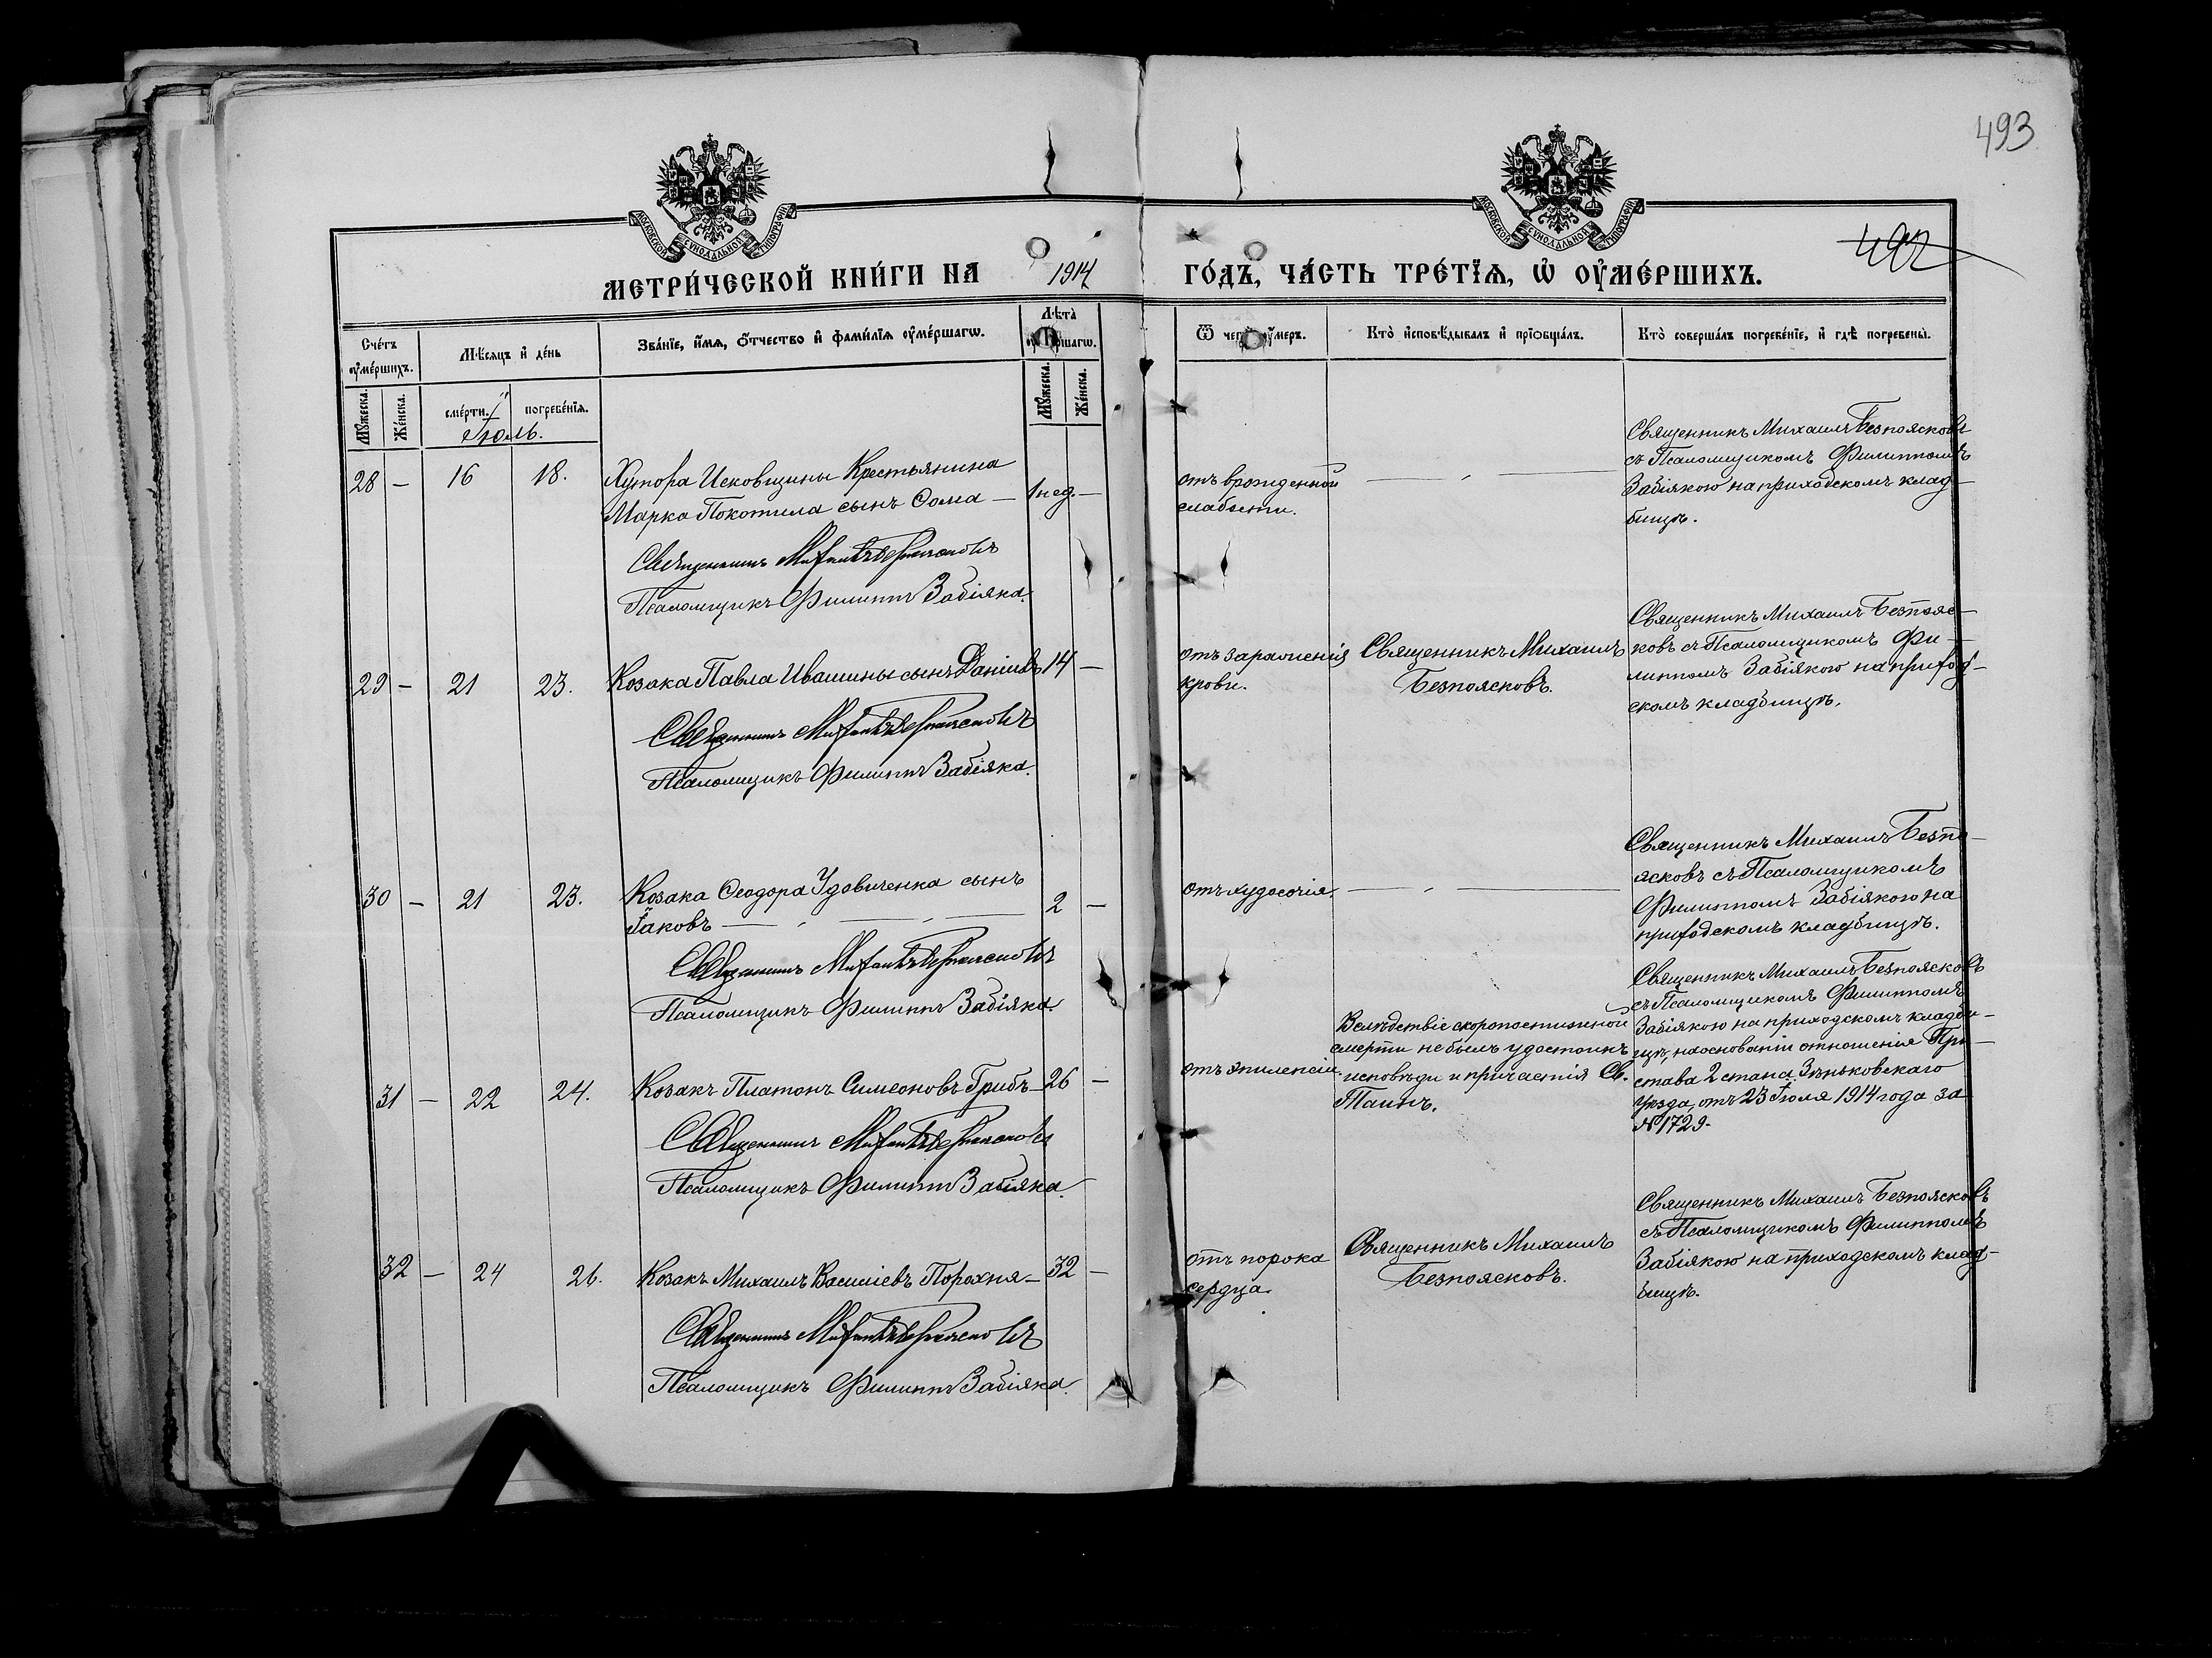 493
492
МОСКОВСКОЙ СѴНОДАЛЬНОЙ ТИПОГРАФІИ
МОСКОВСКОЙ СѴНОДАЛЬНОЙ ТИПОГРАФІИ
МЕТРИ́ЧЕСКОЙ КНИ́ГИ НА 1914 ГО́ДЪ, ЧА́СТЬ ТРЕ́ТЇѦ, Ѡ҆ ОУ҆МЕ́РШИХЪ.
Сче́тъ оу҆ме́ршихъ.
Мꙋ́жеска.
Же́нска.
Мѣ́сѧцъ и҆ де́нь
сме́рти.
погребе́нїѧ.
Зва́нїе, и҆́мѧ, ѻ҆́тчество и҆ фами́лїѧ оу҆ме́ршагѡ.
Лѣ́та оу҆ме́ршагѡ.
Мꙋ́жеска.
Же́нска.
Ѿ чегѡ̀ оу҆́меръ.
Кто̀ и҆сповѣ́дывалъ и҆ прїѡбща́лъ.
Кто̀ соверша́лъ погребе́нїе, и҆ гдѣ̀ погребены̀.
Іюль.
28 — 16 18.
Хутора Исковщины Крестьянина
Марка Покотила сынъ Ѳома — 1 нед. —
Священникъ Михаилъ Безпоясковъ
Псаломщикъ Филиппъ Забіяка.
отъ врожденной
слабости.
Священникъ Михаилъ Безпоясковъ
съ Псаломщикомъ Филиппомъ
Забіякою на приходскомъ клад-
бищѣ.
29 — 21 23.
Козака Павла Ивашины сынъ Даніилъ 14 —
Священникъ Михаилъ Безпоясковъ
Псаломщикъ Филиппъ Забіяка.
отъ зараженія
крови.
Священникъ Михаилъ
Безпоясковъ.
Священникъ Михаилъ Безпояс-
ковъ съ Псаломщикомъ Фи-
липпомъ Забіякою на приход-
скомъ кладбищѣ.
30 — 21 23.
Козака Ѳеодора Удовиченка сынъ
Іаковъ — 2 —
Священникъ Михаилъ Безпоясковъ
Псаломщикъ Филиппъ Забіяка.
отъ худосочія.
Священникъ Михаилъ Безпо-
ясковъ съ Псаломщикомъ
Филиппомъ Забіякою на
приходскомъ кладбищѣ.
31 — 22 24.
Козакъ Платонъ Симеоновъ Грибъ — 26 —
Священникъ Михаилъ Безпоясковъ
Псаломщикъ Филиппъ Забіяка.
отъ эпилепсіи.
Вслѣдствіе скоропостижной
смерти не былъ удостоинъ
исповѣди и причастія Св.
Таинъ.
Священникъ Михаилъ Безпоясковъ
съ Псаломщикомъ Филиппомъ
Забіякою на приходскомъ кладби-
щѣ, на основаніи отношенія При-
става 2 стана Зѣньковскаго
уѣзда, отъ 23 Іюля 1914 года за
№ 1729.
32 — 24 26.
Козакъ Михаилъ Василіевъ Порохня — 32 —
Священникъ Михаилъ Безпоясковъ
Псаломщикъ Филиппъ Забіяка.
отъ порока
сердца.
Священникъ Михаилъ
Безпоясковъ.
Священникъ Михаилъ Безпоясковъ
съ Псаломщикомъ Филиппомъ
Забіякою на приходскомъ клад-
бищѣ.